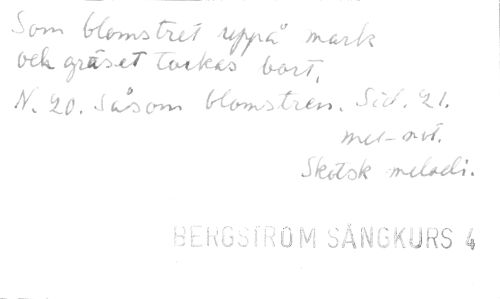 Som blomstret uppå mark
och gräset torkas bort,
N. 20. Såsom blomstren. Sid. 21.
mel-not.
Skotsk melodi.
BERGSTRÖM SÅNGKURS 4